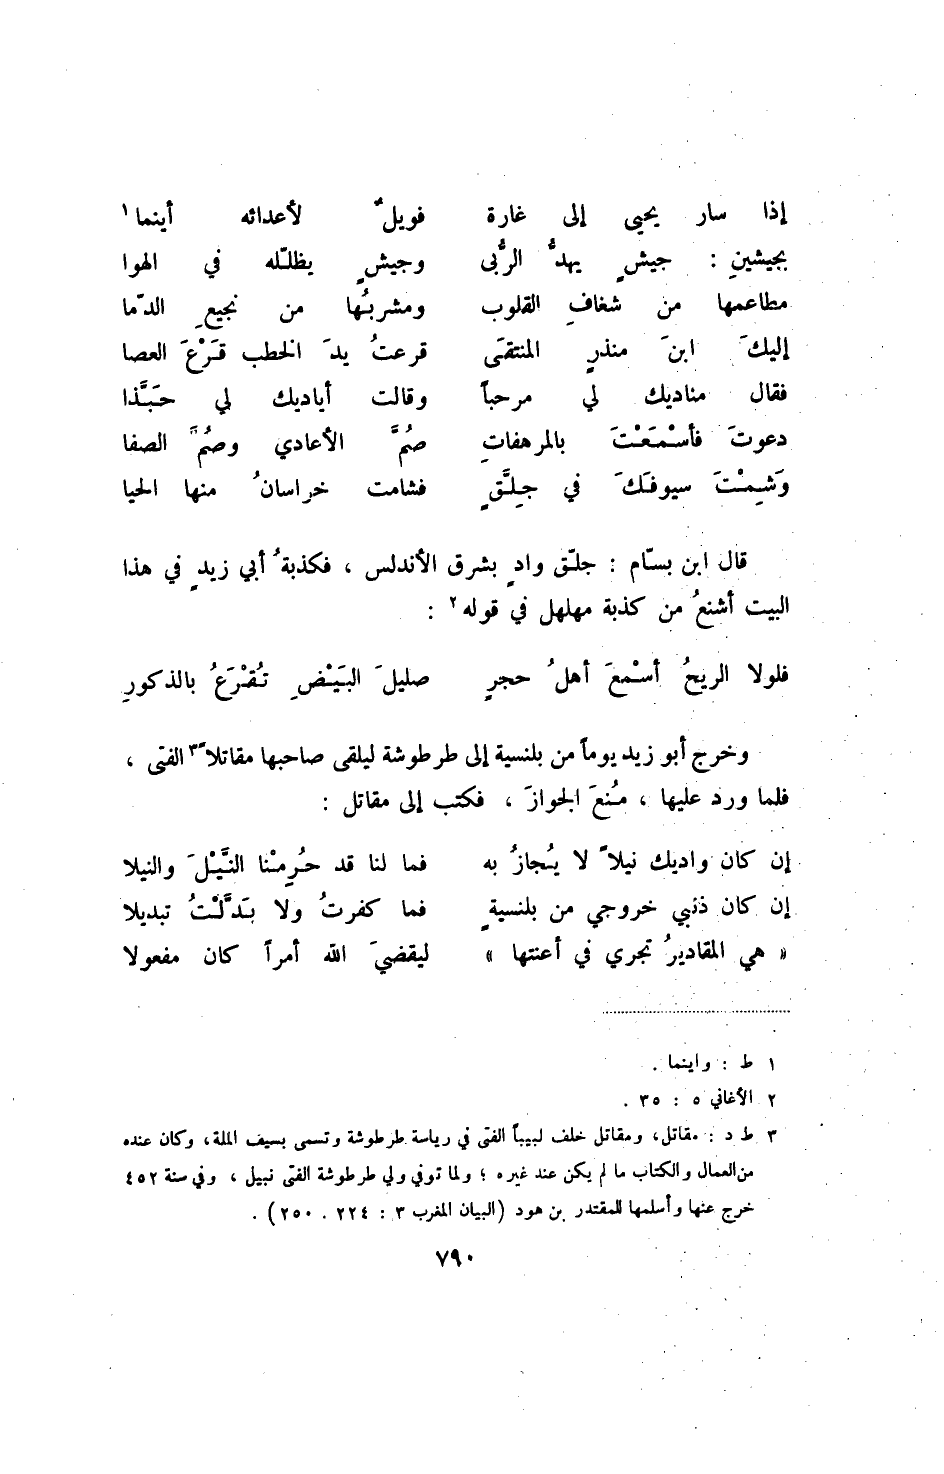 إذا سار يحيى إلى غارة فويلٌ لأعدائه أينما١
بجيشينِ : جيشٍ يهدُّ الرُّبى وجيشٍ يظلّله في الهوا
مطاعمها من شغافِ القلوب ومشربُها من نجيعِ الدّما
إليكَ ابنَ منذرٍ المنتقَى قرعتُ يدَ الخطب قَرْعَ العصا
فقال مناديك لي مرحباً وقالت أياديك لي حَبَّذا
دعوتَ فأسْمَعْتَ بالمرهفاتِ صُمَّ الأعادي وصُمَّ الصفا
وَشِمْتَ سيوفَكَ في جِلَّقٍ فشامت خراسانُ منها الحيا
قال ابن بسّام : جلّق وادٍ بشرق الأندلس ، فكذبةُ أبي زيدٍ في هذا
البيت أشنعُ من كذبة مهلهل في قوله٢ :
فلولا الريحُ أسْمعَ أهلُ حجرٍ صليلَ البَيْضِ تُقْرَعُ بالذكورِ
وخرج أبو زيد يوماً من بلنسية إلى طرطوشة ليلقى صاحبها مقاتلاً٣ الفتى ،
فلما ورد عليها ، مُنعَ الجوازَ ، فكتب إلى مقاتل :
إن كان واديك نيلاً لا يُجازُ به فما لنا قد حُرِمْنا النَّيْلَ والنيلا
إن كان ذنبي خروجي من بلنسيةٍ فما كفرتُ ولا بَدَّلْتُ تبديلا
« هي المقاديرُ تجري في أعنتها » ليقضيَ الله أمراً كان مفعولا
١ ط : واينما .
٢ الأغاني ٥ : ٣٥ .
٣ ط د : مقاتل، ومقاتل خلف لبيباً الفتى في رياسة طرطوشة وتسمى بسيف الملة، وكان عنده
من العمال والكتاب ما لم يكن عند غيره ؛ ولما توفي ولي طرطوشة الفتى نبيل ، وفي سنة ٤٥٢
خرج عنها وأسلمها للمقتدر بن هود (البيان المغرب ٣ : ٢٢٤ . ٢٥٠) .
٧٩٠